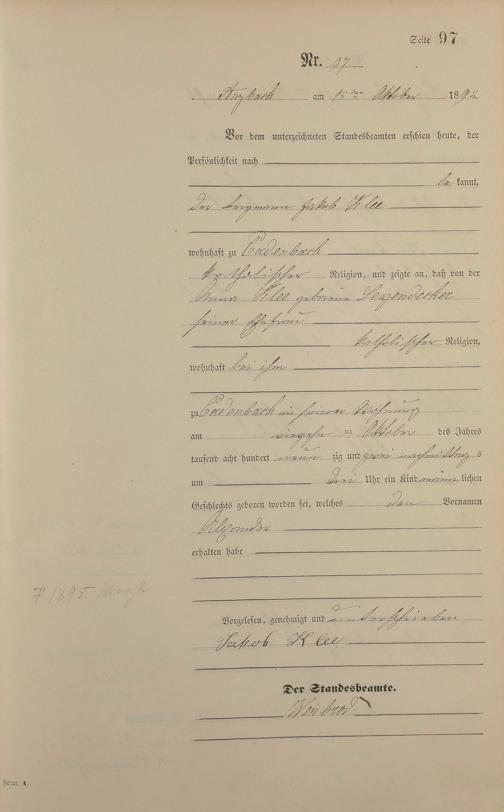 Seite 97
Nr. 97
Arzbach am 15ten Oktober 1892
Vor dem unterzeichneten Standesbeamten erschien heute, der
Persönlichkeit nach
be kannt,
der Bergmann Jakob Klee
wohnhaft zu Cadenbach
katholischer Religion, und zeigte an, daß von der
Anna Klee geborene
seiner Ehefrau
katholischer Religion,
wohnhaft bei ihm
zu Cadenbach in seiner Wohnung
am vierzehn ten Oktober des Jahres
tausend acht hundert neun zig und zwei nachmittag s
um drei Uhr ein Kind männ lichen
Geschlechts geboren worden sei, welches den Vornamen
Alexander
erhalten habe
† 1895 März 2
Vorgelesen, genehmigt und unterschrieben
Jakob Klee
Der Standesbeamte.
Form. A.